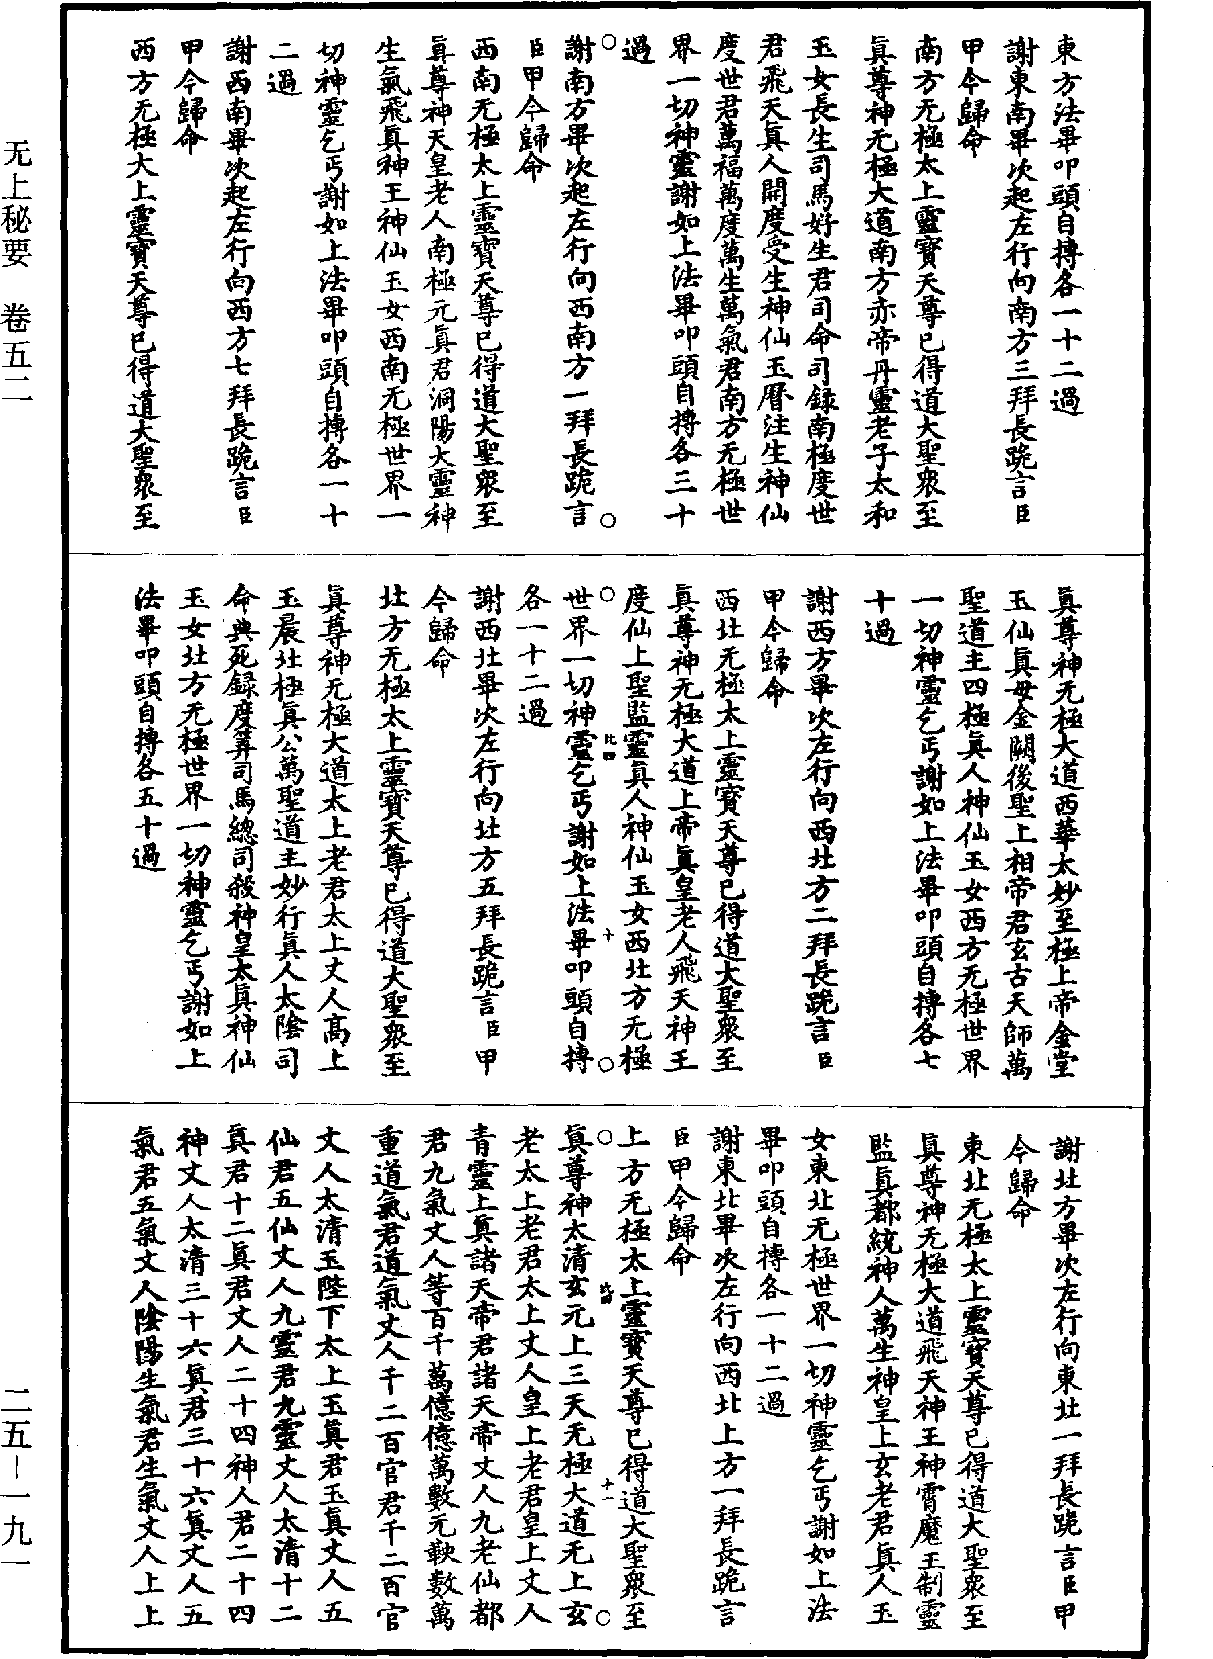 无上秘要　卷五二
東方法畢叩頭自搏各一十二過
謝東南畢次起左行向南方三拜長跪言臣
甲今歸命
南方无極太上靈寶天尊已得道大聖衆至
眞尊神无極大道南方赤帝丹靈老子太和
玉女長生司馬好生君司命司錄南極度世
君飛天眞人開度受生神仙玉曆注生神仙
度世君萬福萬度萬生萬氣君南方无極世
界一切神靈謝如上法畢叩頭自搏各三十
過
謝南方畢次起左行向西南方一拜長跪言
臣甲今歸命
西南无極太上靈寶天尊已得道大聖衆至
眞尊神天皇老人南極元眞君洞陽大靈神
生氣飛眞神王神仙玉女西南无極世界一
切神靈乞丐謝如上法畢叩頭自搏各一十
二過
謝西南畢次起左行向西方七拜長跪言臣
甲今歸命
西方无極大上靈寶天尊已得道大聖衆至
眞尊神无極大道西華太妙至極上帝金堂
玉仙眞母金闕後聖上相帝君玄古天師萬
聖道主四極眞人神仙玉女西方无極世界
一切神靈乞丐謝如上法畢叩頭自搏各七
十過
謝西方畢次左行向西北方二拜長跪言臣
甲今歸命
西北无極太上靈寶天尊已得道大聖衆至
眞尊神无極大道上帝眞皇老人飛天神王
度仙上聖監靈眞人神仙玉女西北方无極
世界一切神靈乞丐謝如上法畢叩頭自搏
各一十二過
謝西北畢次左行向北方五拜長跪言臣甲
今歸命
北方无極太上靈寶天尊已得道大聖衆至
眞尊神无極大道太上老君太上丈人高上
玉晨北極眞公萬聖道主妙行眞人太陰司
命典死錄度筭司馬總司殺神皇太眞神仙
玉女北方无極世界一切神靈乞丐謝如上
法畢叩頭自搏各五十過
謝北方畢次左行向東北一拜長跪言臣甲
今歸命
東北无極太上靈寶天尊已得道大聖衆至
眞尊神无極大道飛天神王神霄魔王制靈
監眞都統神人萬生神皇上玄老君眞人玉
女東北无極世界一切神靈乞丐謝如上法
畢叩頭自搏各一十二過
謝東北畢次左行向西北上方一拜長跪言
臣甲今歸命
上方无極太上靈寶天尊已得道大聖衆至
眞尊神太清玄元上三天无極大道无上玄
老太上老君太上丈人皇上老君皇上丈人
青靈上眞諸天帝君諸天帝丈人九老仙都
君九氣丈人等百千萬億億萬數元軮數萬
重道氣君道氣丈人千二百官君千二百官
丈人太清玉陛下太上玉眞君玉眞丈人五
仙君五仙丈人九靈君九靈丈人太清十二
眞君十二眞君丈人二十四神人君二十四
神丈人太清三十六眞君三十六眞丈人五
氣君五氣丈人陰陽生氣君生氣丈人上上
二五—一九一